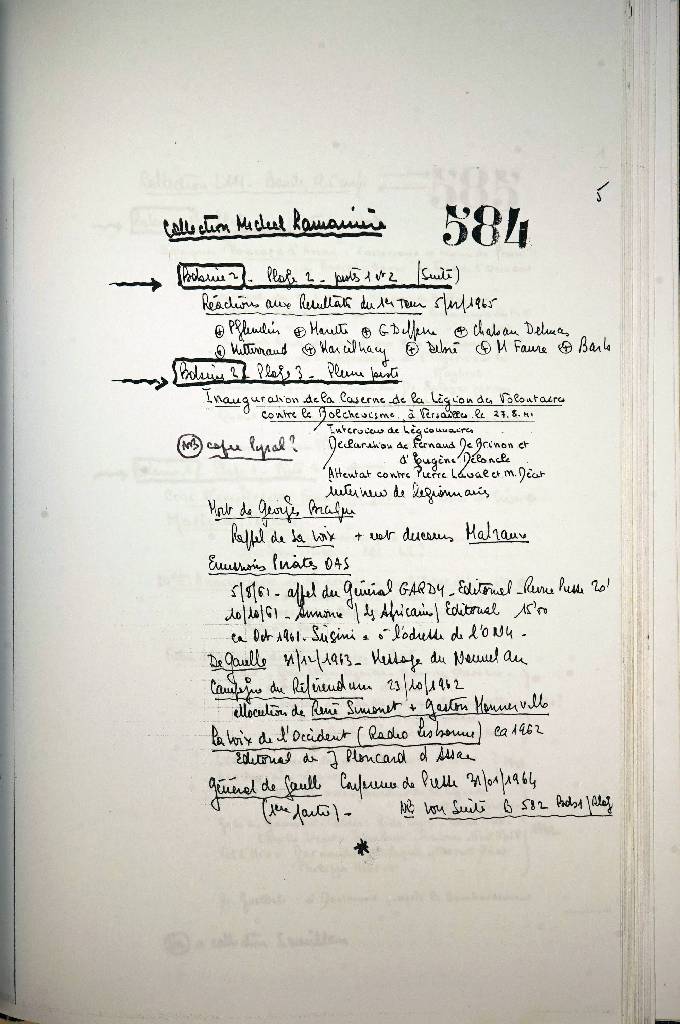 5
Collection Michel Ramonière 584
Bobine 2 - Plage 2 - pistes 1 et 2 (Suite)
Réactions aux Resultats du 1er Tour 5/12/1965
⊕ Pflemlin ⊕ Marette ⊕ G Defferre ⊕ Chaban Delmas
⊕ Mitterand ⊕ Marcilhacy ⊕ Debré ⊕ M Faure ⊕ Barb
Bobine 2 - Plage 3 - Pleine piste
Inauguration de la Caserne de la Légion des Volontaires
contre le Bolchevisme à Versailles le 27.8.41
Interview de Légionnaires
NB copie Pyral? Déclaration de Fernand De Brinon et
d'Eugène Deloncle
Attentat contre Pierre Laval et M. Déat
Interview de Legionnaires
Mort de Georges Braque
Rappel de sa voix + ext discours Malraux
Emissions Pirates OAS
5/8/61 - appel du Général GARDY - Editorial - Revue Presse 20'
10/10/61 - Annonce (Les Africains) Editorial 15'00
ca Oct 1961 - Susini = à l'adresse de l'ONU -
De Gaulle 31/12/1963 - Message du Nouvel An
Campagne du Référendum 23/10/1962
allocution de René Simonet + Gaston Monnerville
La Voix de l'Occident (Radio Lisbonne) ca 1962
Editorial de J Ploncard d'Assac
Général de Gaulle Conférence de Presse 31/01/1964
(1ère partie) - NB voir Suite B 582 Bob 1/Plag
*